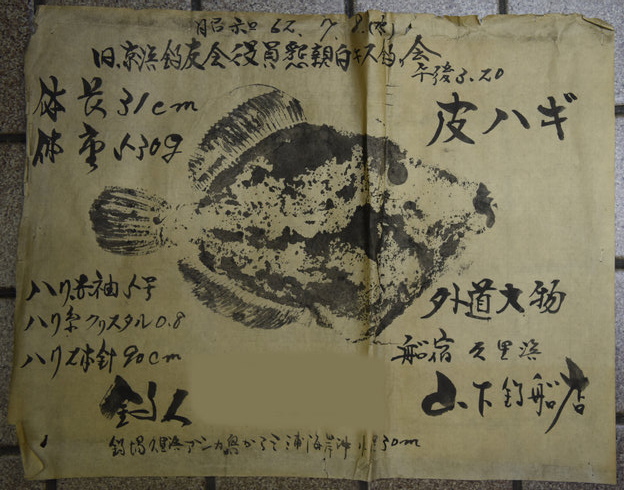 昭和62.7.8.(水)
旧京浜釣友会役員懇親白キス釣会
午後3.20
体長31cm
体重530g
皮ハギ
ハリ赤袖5号
ハリ糸クリスタル0.8
ハリス本針90cm
外道大物
船宿 久里浜
山下釣船店
釣人
釣場久里浜アシカ島から三浦海岸沖 水深30m